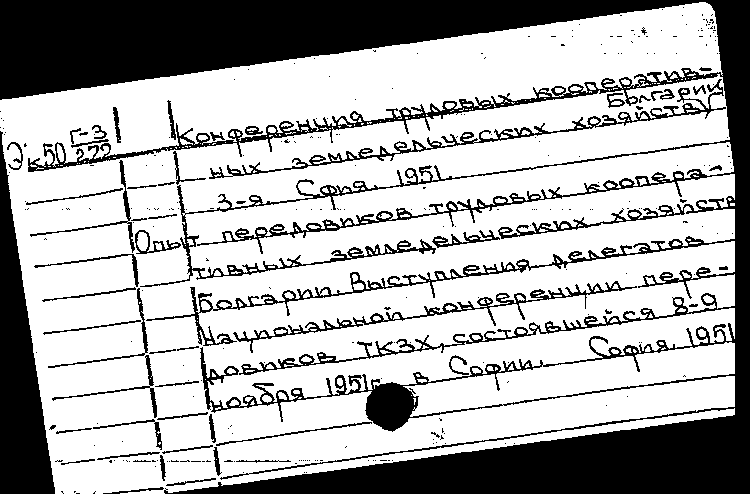 Э К50 Г-3/272
Конференция трудовых кооператив-
ных земледельческих хозяйств Болгарии
3-я. София. 1951.
Опыт передовиков трудовых коопера-
тивных земледельческих хозяйств
Болгарии. Выступления делегатов
Национальной конференции пере-
довиков ТКЗХ, состоявшейся 8-9
ноября 1951г. в Софии. София, 1951